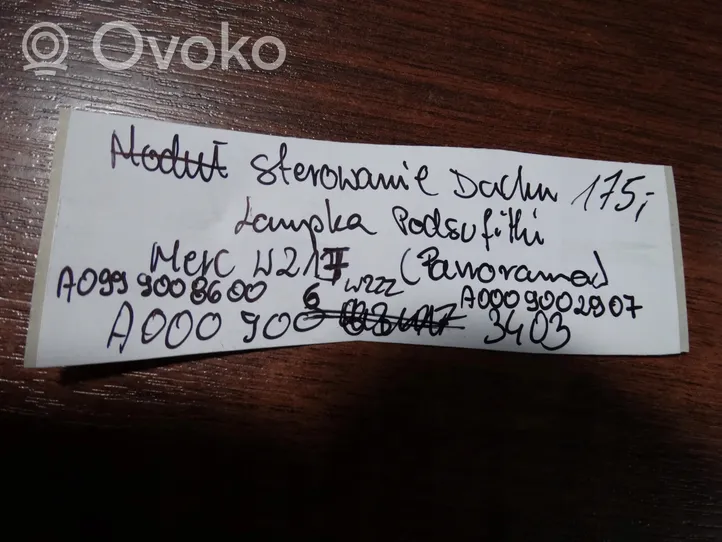 Ovoko
Moduł Sterowanie Dachu 175,-
Lampka Podsufitki
Merc W217 (Panorama)
A099 900 8600 6 W222 A000 900 2907
A000 900 3403